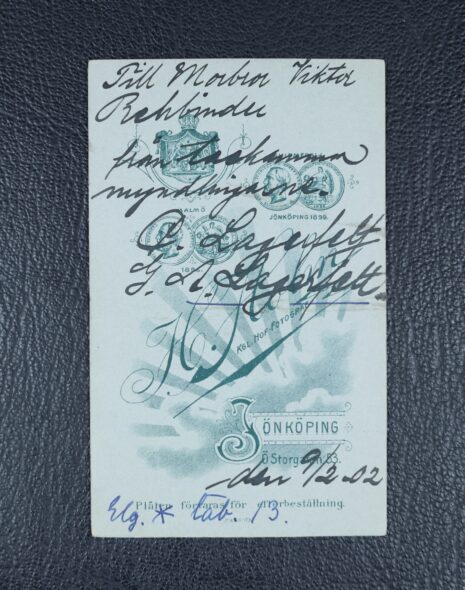 Till Morbror Viktor
Rehbinder
från tacksamma
myndlingarne.
MALMÖ
JÖNKÖPING 1899.
O. Lagerfelt
G. A. Lagerfelt
KGL. HOF-FOTOGRAF
JÖNKÖPING
Ö Storgatan 83.
den 9/2 02
Plåten förvaras för efterbeställning.
Elg. * tab. 13.